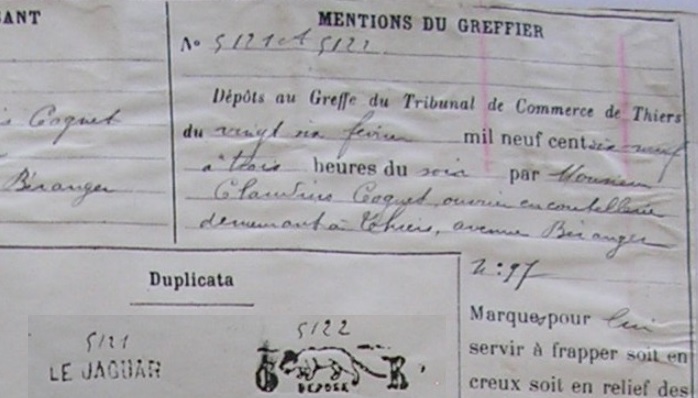 ANT
s Coquet
Béranger
MENTIONS DU GREFFIER
No 5121 et 5122
Dépôts au Greffe du Tribunal de Commerce de Thiers
du vingt six février mil neuf cent neuf
à trois heures du soir par Monsieur
Claudius Coquet ouvrier en coutellerie
demeurant à Thiers, avenue Béranger
n: 97
Marque pour lui
servir à frapper soit en
creux soit en relief des
Duplicata
5121
LE JAGUAR
5122
G K
DEPOSE